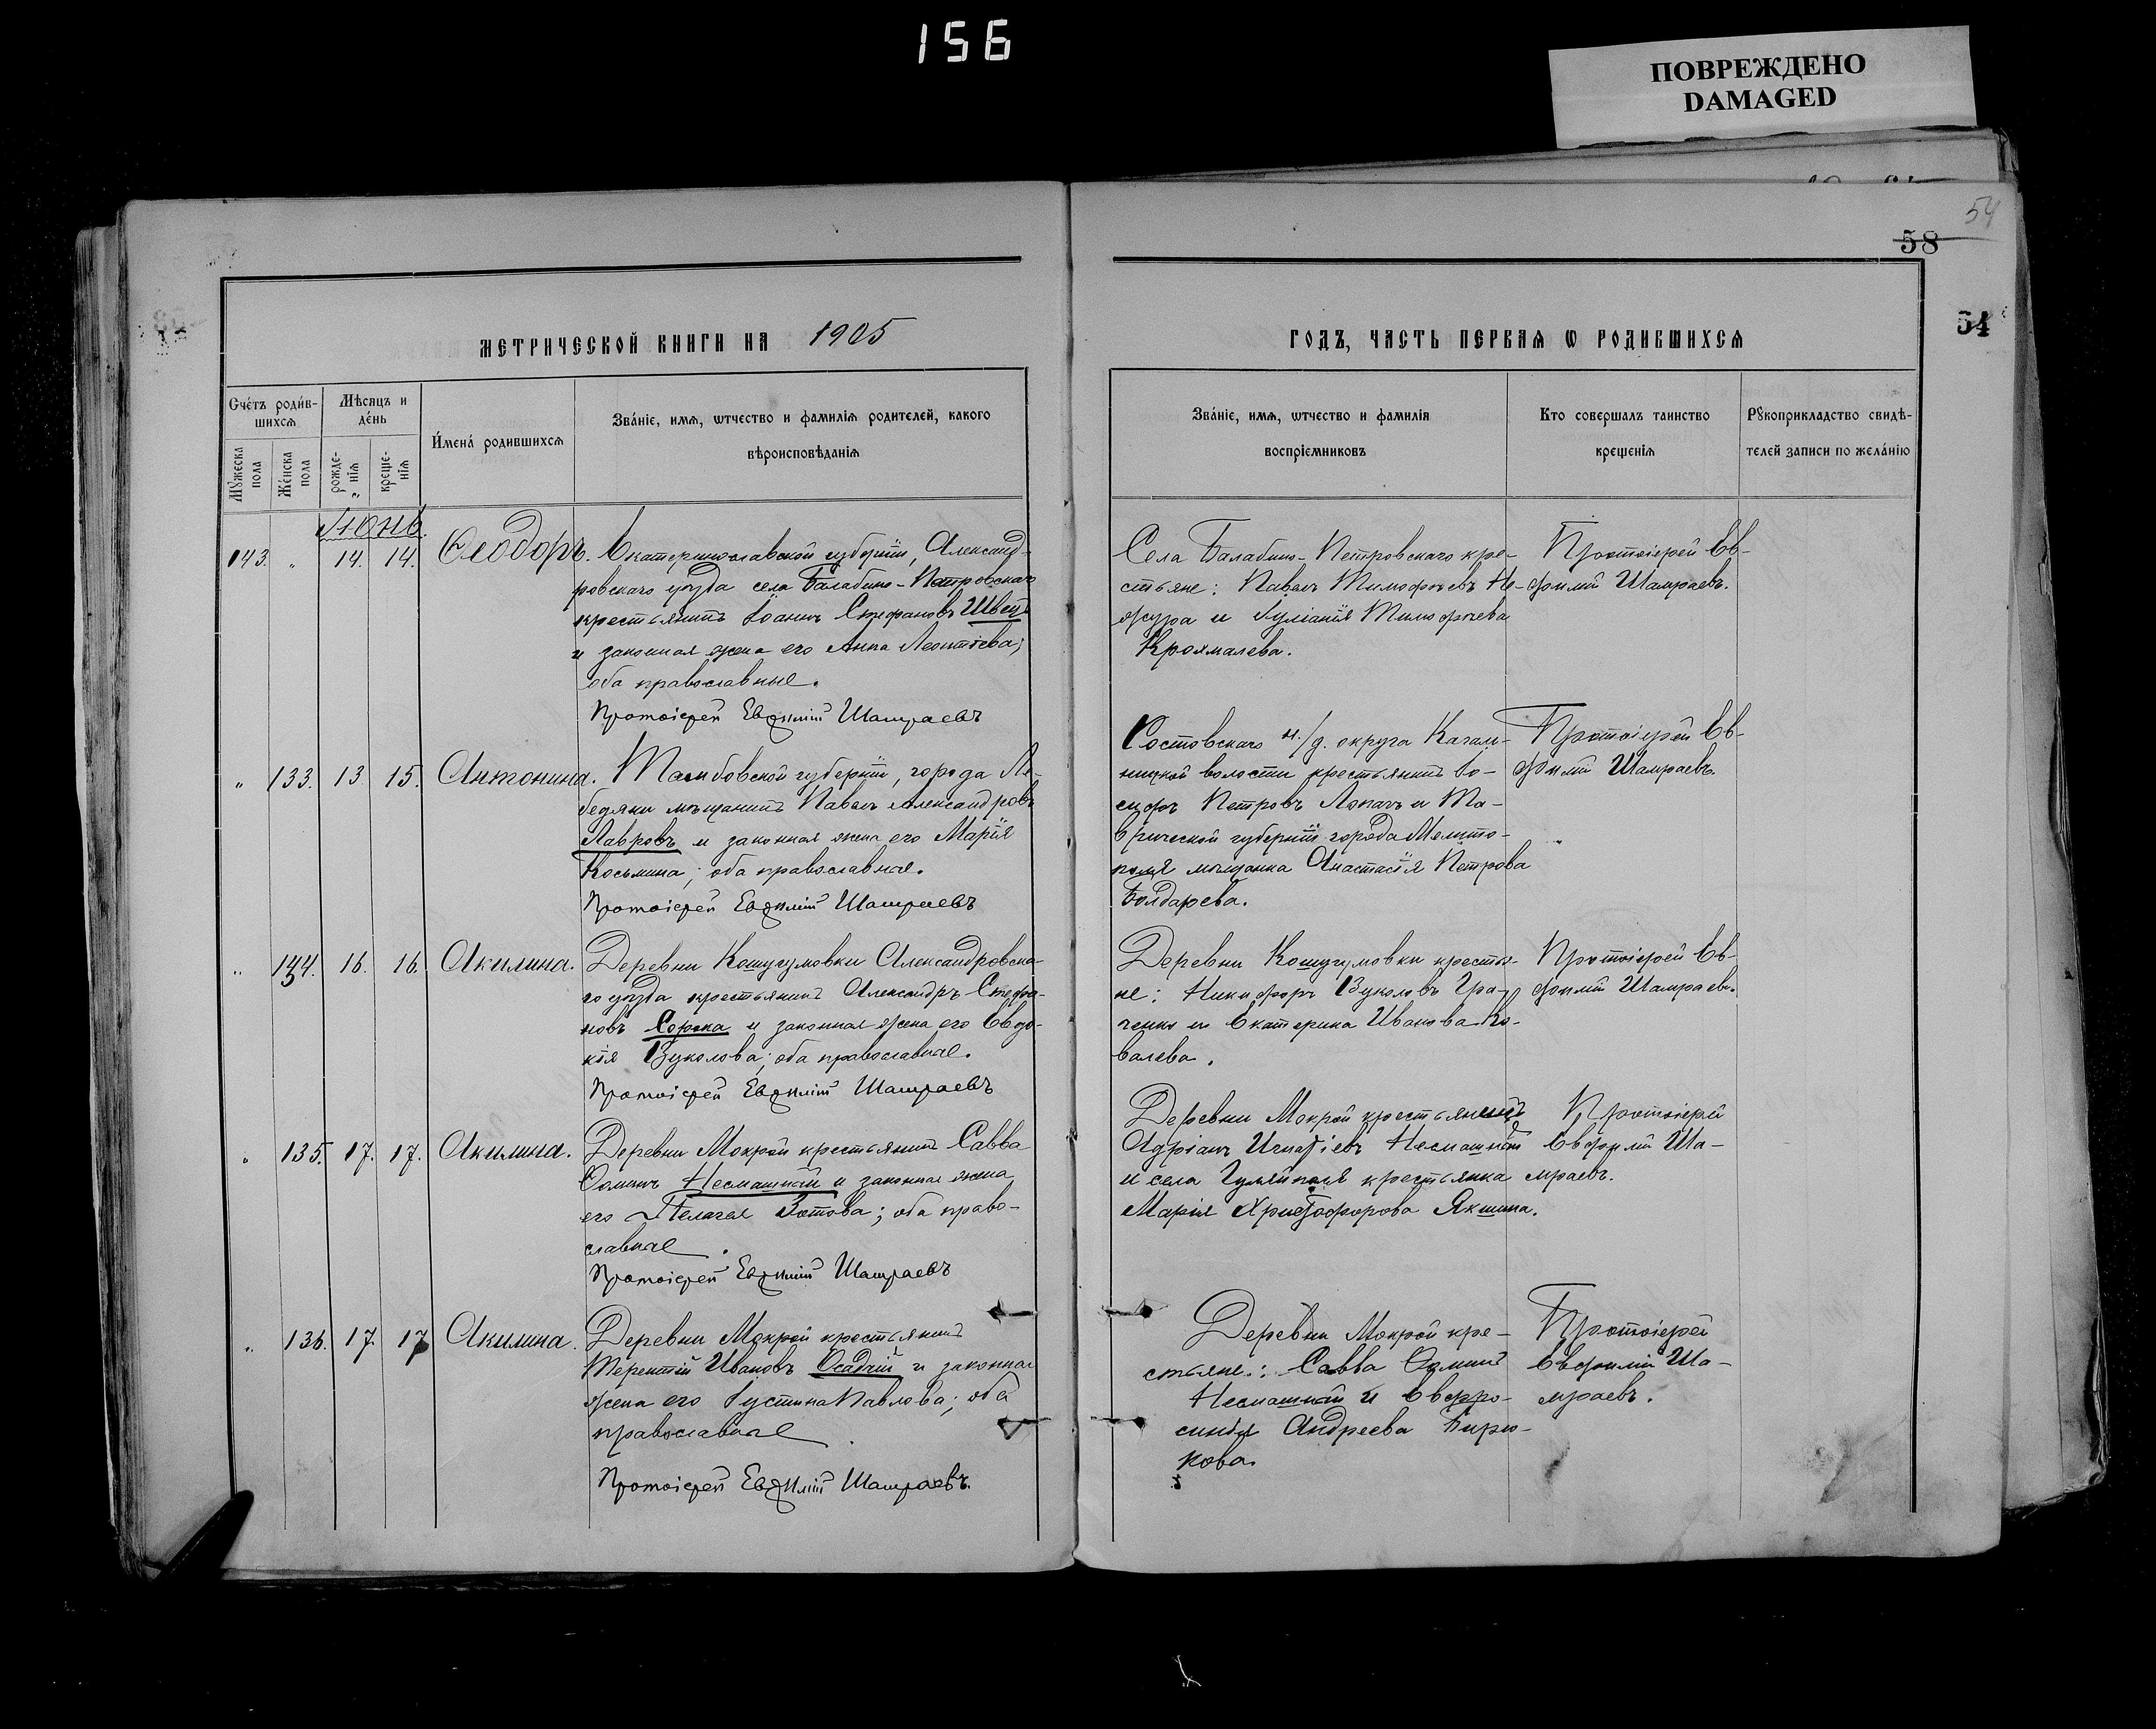 156
ПОВРЕЖДЕНО
DAMAGED
54
58
54
МЕТРИЧЕСКОЙ КНИГИ НА 1905
ГОДЪ, ЧАСТЬ ПЕРВАЯ Ѡ РОДИВШИХСЯ
Счетъ родив-
шихся
Мѣсяцъ и
день
Мужеска
пола
Женска
пола
рожде-
нія
креще-
нія
Имена родившихся
Званіе, имя, ѡтчество и фамилія родителей, какого
вѣроисповѣданія
Званіе, имя, ѡтчество и фамилія
воспріемниковъ
Кто совершалъ таинство
крещенія
Рукоприкладство свидѣ-
телей записи по желанію
Іюнь.
143. " 14. 14. Ѳеодоръ.
Екатеринославской губерніи, Александ-
ровскаго уѣзда села Балабино-Петровскаго
крестьянинъ Іоаннъ Стефановъ Швецъ
и законная жена его Анна Леонтіева;
оба православные.
Протоіерей Евѳимій Шамраевъ
Села Балабино-Петровскаго кре-
стьяне: Павелъ Тимофеевъ Не-
жура и Іуліанія Тимофеева
Крохмалева.
Протоіерей Ев-
фимій Шамраевъ.
" 133. 13 15. Антонина.
Тамбовской губерніи, города Ле-
бедяни мѣщанинъ Павелъ Александровъ
Лавровъ и законная жена его Марія
Косьмина; оба православные.
Протоіерей Евѳимій Шамраевъ
Ростовскаго н./д. округа Кагаль-
ницкой волости крестьянинъ Іо-
сифъ Петровъ Лопачъ и Та-
врической губерніи города Мелито-
поля мѣщанка Анастасія Петрова
Болдарева.
Протоіерей Ев-
фимій Шамраевъ.
" 134. 16. 16. Акилина.
Деревни Кошугумовки Александровска-
го уѣзда крестьянинъ Александръ Стефа-
новъ Сорока и законная жена его Евдо-
кія Вуколова; оба православные.
Протоіерей Евѳимій Шамраевъ
Деревни Кошугумовки крестья-
не: Никифоръ Вуколовъ Гра-
ченко и Екатерина Иванова Ко-
валева.
Протоіерей Ев-
фимій Шамраевъ.
" 135. 17. 17. Акилина.
Деревни Мокрой крестьянинъ Савва
Ѳоминъ Несмашный и законная жена
его Пелагея Зотова; оба право-
славные.
Протоіерей Евѳимій Шамраевъ
Деревни Мокрой крестьянинъ
Адріанъ Игнатіевъ Несмашный
и села Гуляйполя крестьянка
Марія Христофорова Якшина.
Протоіерей
Евфимій Ша-
мраевъ.
" 136. 17. 17 Акилина.
Деревни Мокрой крестьянинъ
Терентій Ивановъ Осадчій и законная
жена его Іустина Павлова; оба
православные.
Протоіерей Евѳимій Шамраевъ.
Деревни Мокрой кре-
стьяне: Савва Ѳоминъ
Несмашный и Евфро-
синія Андреева Бирю-
кова.
Протоіерей
Евфимій Ша-
мраевъ.